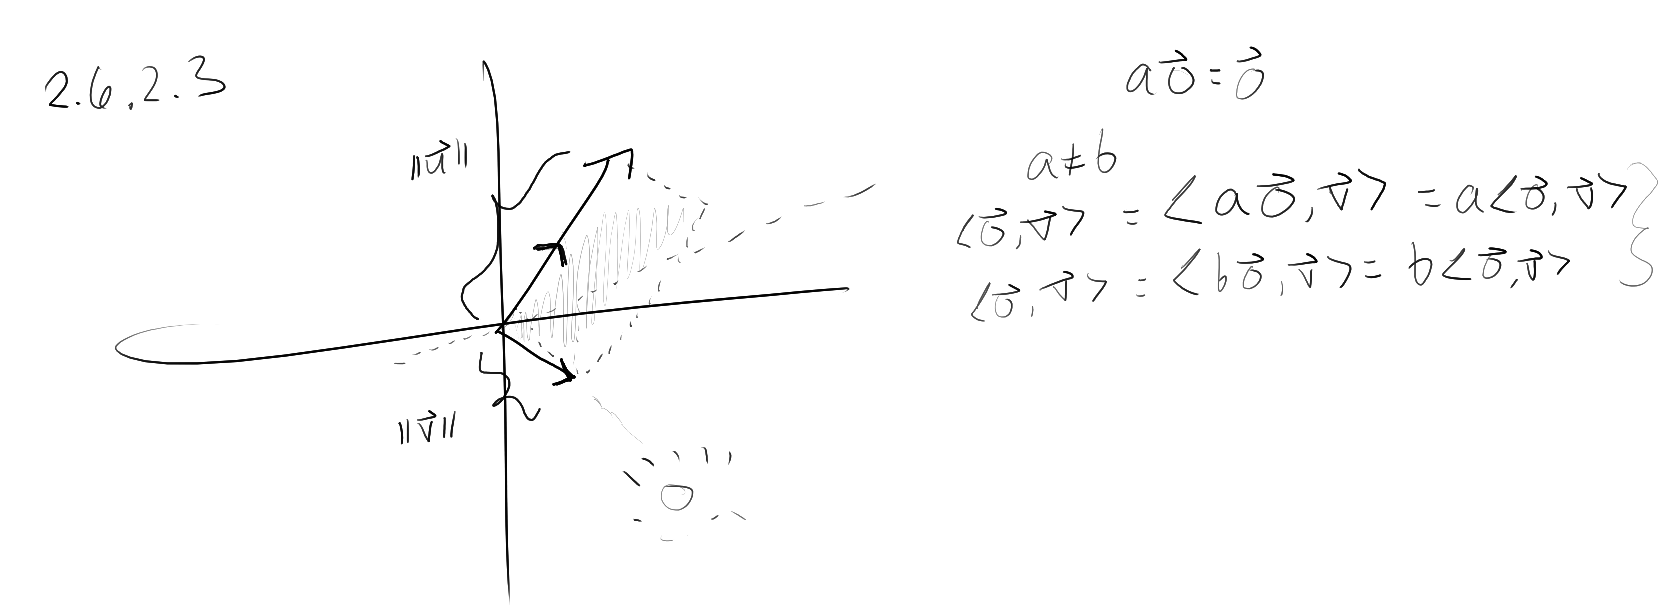 2.6.2.3
‖u⃗‖
‖v⃗‖
a0⃗ = 0⃗
a ≠ b
<0⃗, v⃗> = <a0⃗, v⃗> = a<0⃗, v⃗>
<0⃗, v⃗> = <b0⃗, v⃗> = b<0⃗, v⃗>